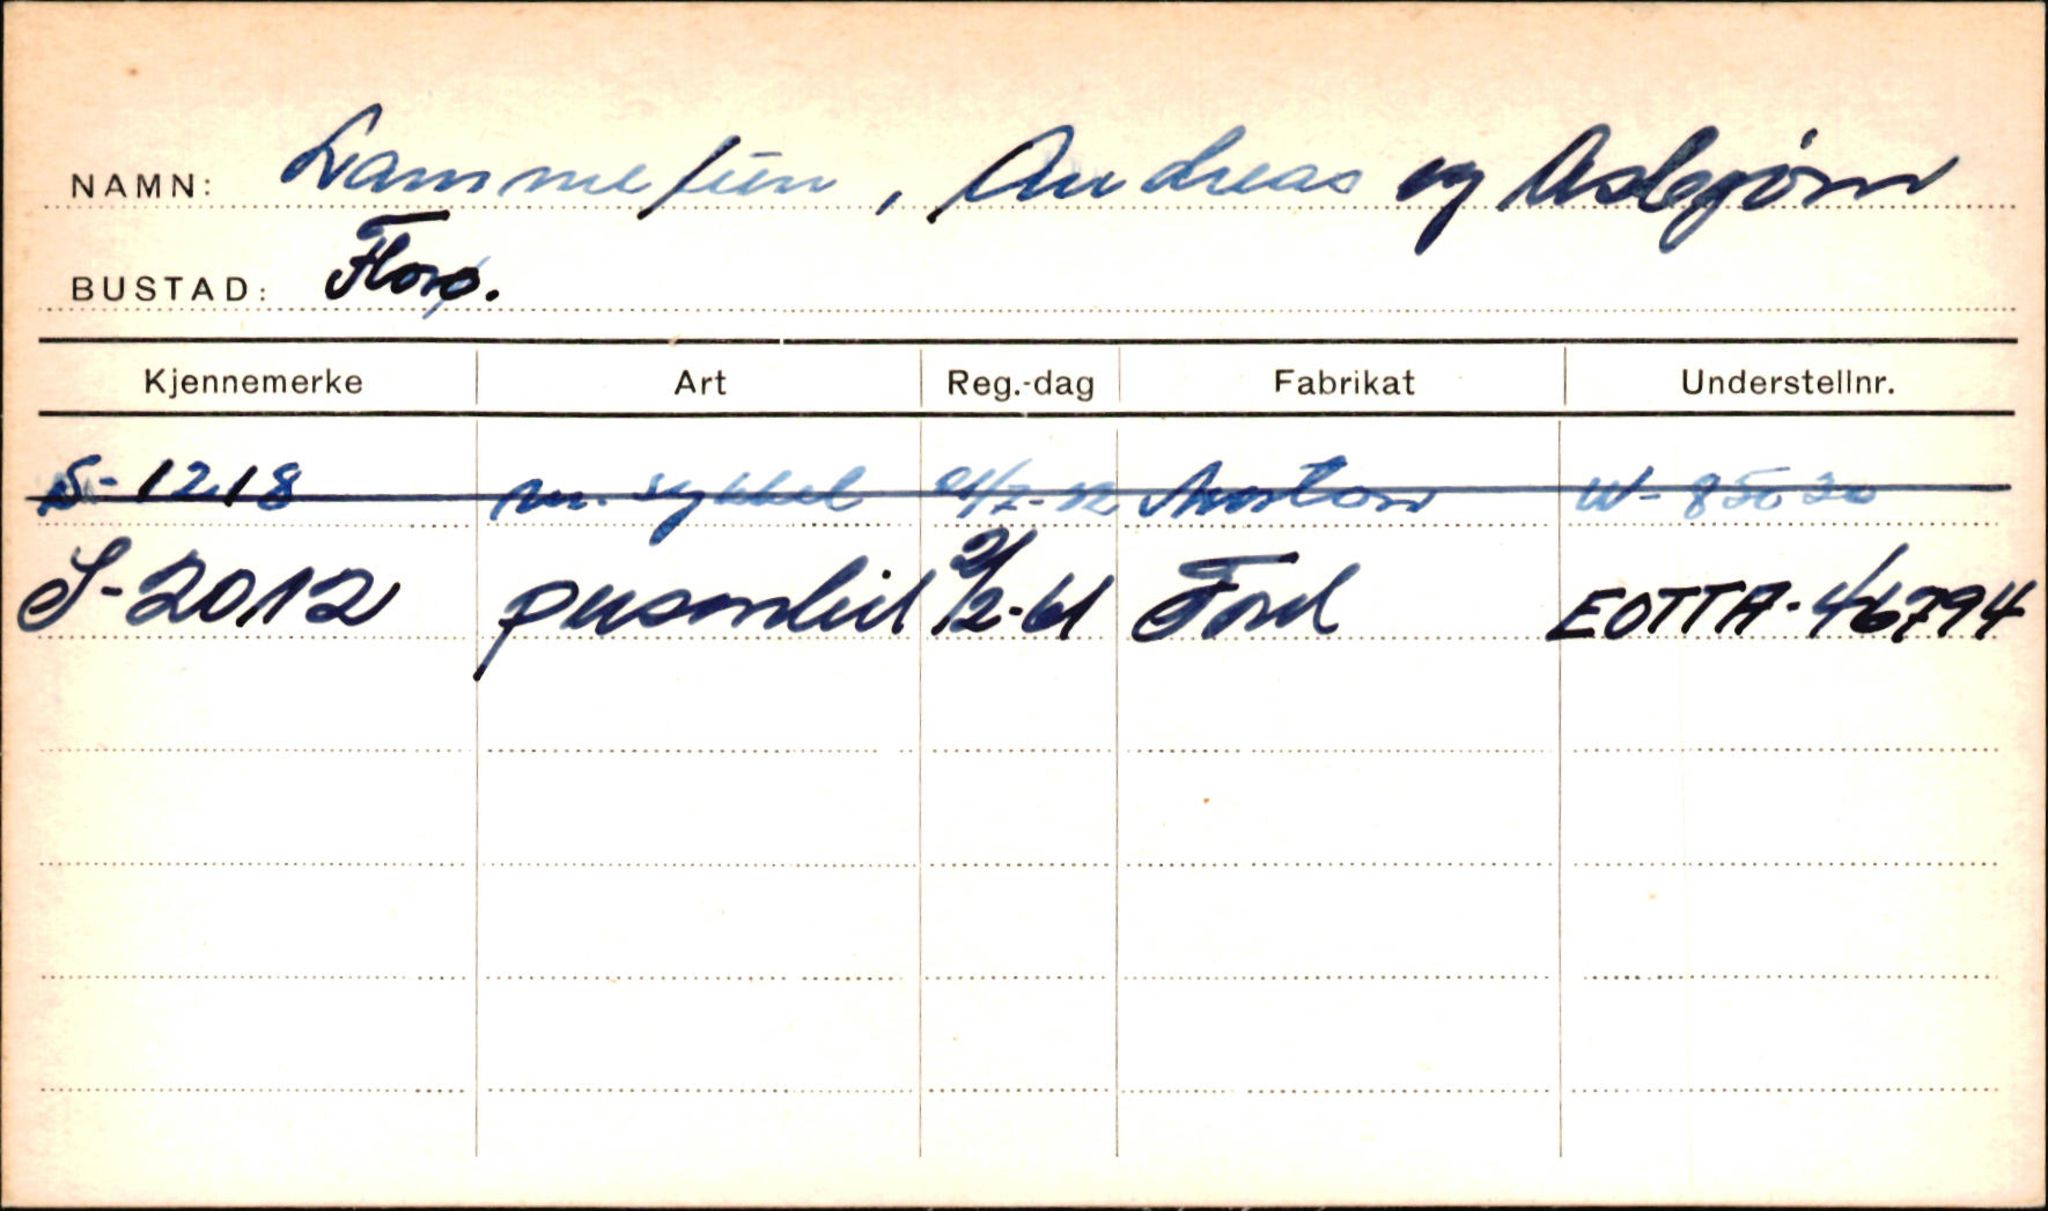 NAMN: Lammetun, Andreas og Asbjørn
BUSTAD: Florø.
Kjennemerke Art Reg.-dag Fabrikat Understellnr.
S-1218 m. sykkel W-85020
S-2012 personbil 2/2-61 Ford EOTTA-46794